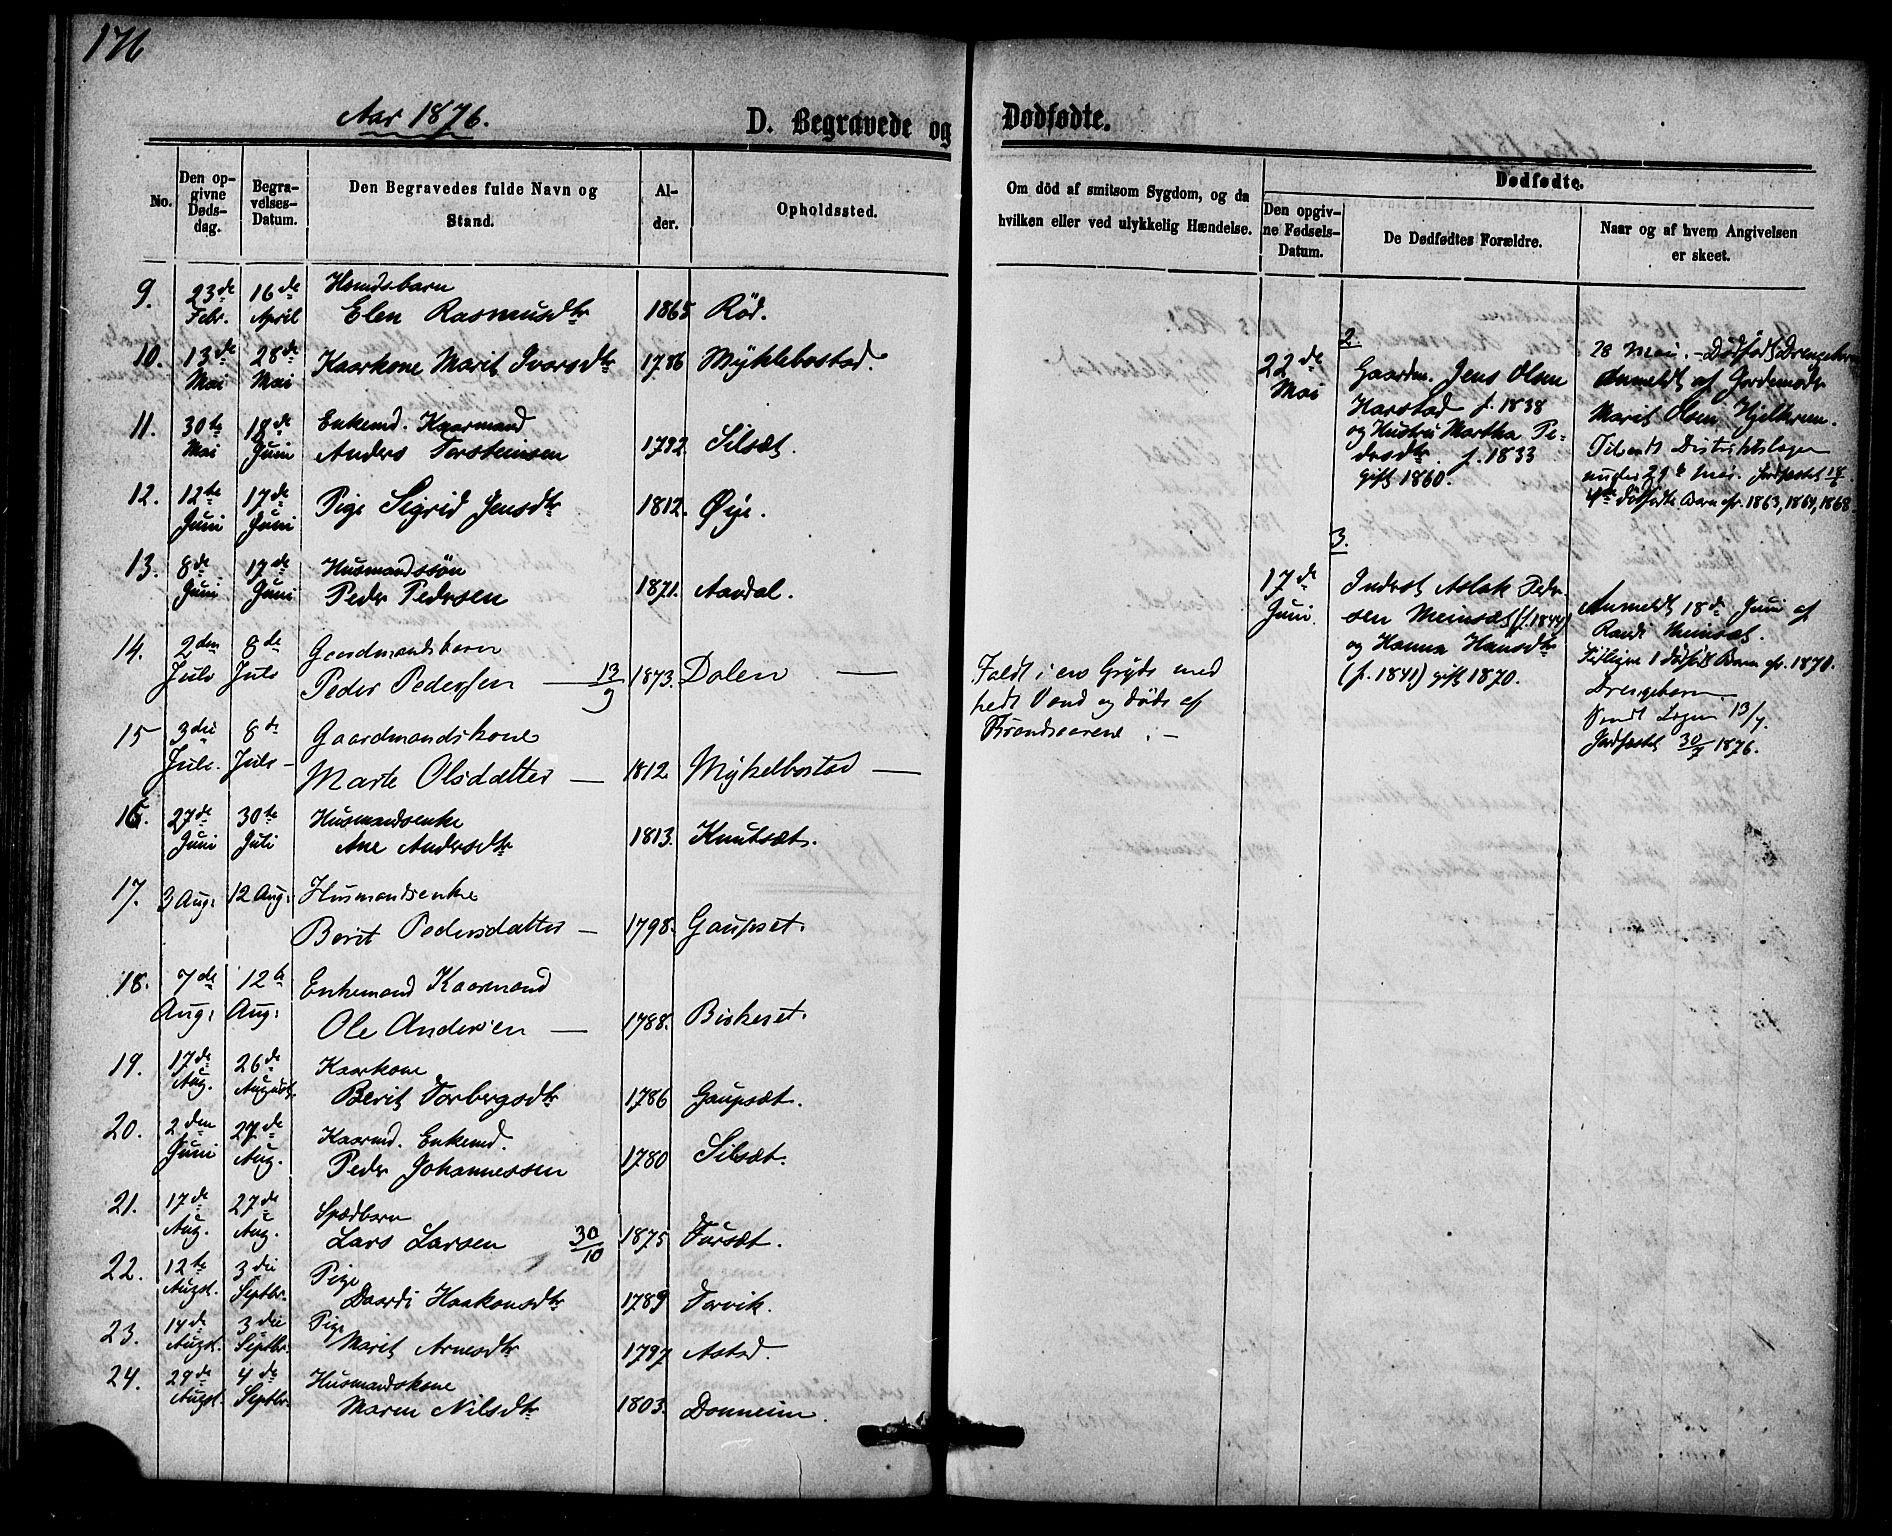 176
Aar 1876.
D. Begravede og Dødfødte.
No.
Den opgivne Dødsdag.
Begravelses-Datum.
Den Begravedes fulde Navn og Stand.
Alder.
Opholdssted.
Om død af smitsom Sygdom, og da hvilken eller ved ulykkelig Hændelse.
Dødfødte.
Den opgivne Fødsels-Datum.
De Dødfødtes Forældre.
Naar og af hvem Angivelsen er skeet.
9. 23de Febr. 16de April
Elen Rasmusdtr 1865 Rød.
10. 13de Mai 28de Mai Kaarkone Marit Ivarsdtr 1786 Myklebostad.
11. 30te Mai 18de Juni Enkemd. Kaarmand
Anders Torsteinsen 1792. Silsæt.
12. 12te Juni 17de Juni Pige Sigrid Jensdtr 1812. Øye.
13. 8de Juni 17de Juni Husmandssøn
Peder Pedersen 1871. Aardal.
14. 2den Juli 8de Juli Gaardmandsbarn
Peder Pederssen — 13/9 1873. Dalen —
Faldt i en Gryde med
hedt Vand og døde af
Brandsaarene. —
15 3die Juli. 8de Juli — Gaardmandskone
Marte Olsdatter — 1812. Mykelbostad —
16. 27de Juni 30te Juli Husmandsenke
Ane Andersdtr 1813. Knutsæt.
17. 3 Aug: 12 Aug: Husmandsenke
Berit Pedersdatter — 1798. Gaupset.
18. 7de Aug: 12te Aug: Enkemand Kaarmand
Ole Andersen — 1788. Birkeset.
19. 17de Aug. 26de August. Kaarkone
Berit Torbergsdtr 1786 Gaupsæt.
20. 2den Juni 27de Aug. Kaarmd. Enkemd.
Peder Johannessen 1780 Silsæt.
21. 17de Aug. 27de Aug. Spædbarn
Lars Larsen 30/10 1875 Tursæt.
22. 12te Augst. 3die Septbr. Pige
Daardi Haakonsdtr 1789 Torvik.
23. 14de Augst. 3die Septbr. Pige
Marit Arnesdtr 1797 Astad.
24. 29de Augst. 4de Septbr. Husmandskone
Maren Nilsdtr 1803. Donneim.
2.
22de Mai
Gaardm. Jens Olsen
Harstad f. 1838
og Hustru Martha Pe-
dersdtr. f. 1833
gift 1860.
28 Mai. — Dødfødt Drengebarn
Anmeldt af Jordemoder
Marit Olsen Hjelkrem.
Distriktslægen
under 29de Mai. Jordfæstet 18/6
4de dødfødte Barn cfr. 1863, 1864, 1868
3.
17de Juni.
Inderst Aslak Peder-
sen Meinsæt (f. 1844)
og Hanna Hansdtr
(f. 1841) gift 1870.
Anmeldt 18de Juni af
Randi Meinsæt.
Tidligere 1 dødfødt Barn cfr. 1870.
Drengebarn
Sendt Lægen 13/7.
Jordfæstet 30/7 1876.